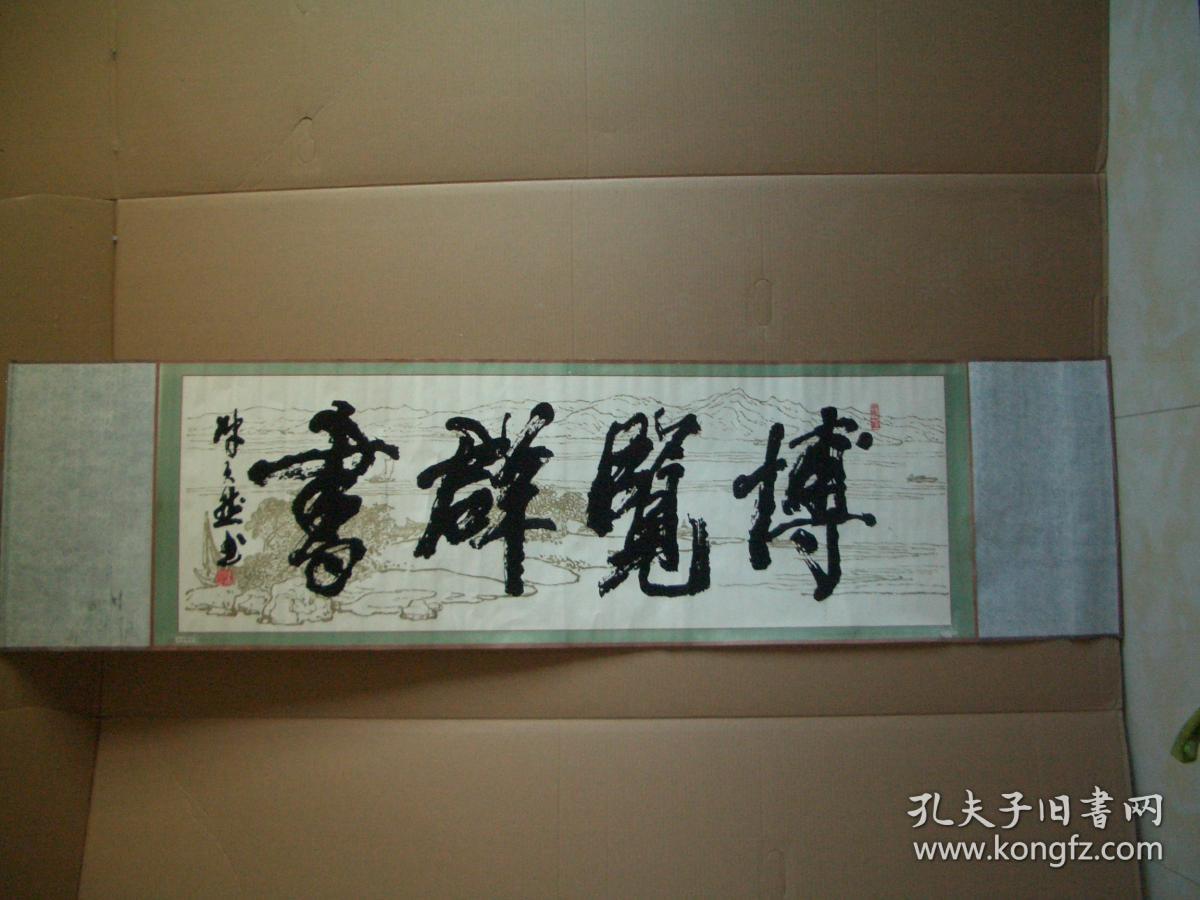 博覽群書
孔夫子旧书网
www.kongfz.com